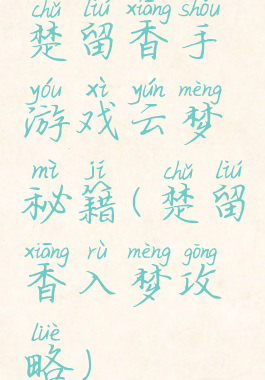 chǔ liú xiāng shǒu
楚留香手
yóu xì yún mèng
游戏云梦
mì jí chǔ liú
秘籍(楚留
xiāng rù mèng gōng
香入梦攻
lüè
略)